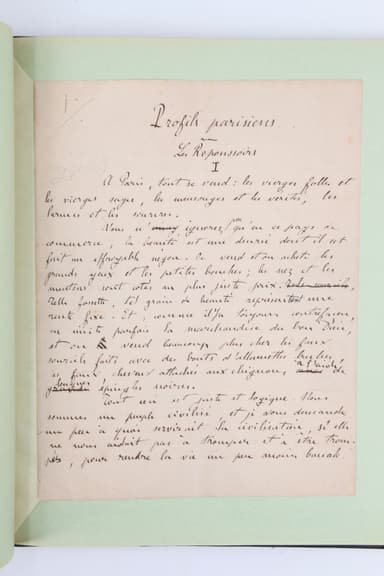 1.
Profils parisiens
Les Repoussoirs
I
A Paris, tout se vend : les vierges folles et
les vierges sages, les mensonges et les vérités, les
larmes et les sourires.
Vous n'ignorez pas qu'en ce pays de
commerce, la beauté est une denrée dont il est
fait un effroyable négoce. On vend et on achète les
grands yeux et les petites bouches ; les nez et les
mentons sont cotés au plus juste prix.
Telle fossette, tel grain de beauté représentent une
rente fixe. Et, comme il y a toujours contrefaçon,
on imite parfois la marchandise du bon Dieu,
et on vend beaucoup plus cher les faux
sourcils faits avec des bouts d'allumettes brûlées,
les faux cheveux attachés aux chignons à l'aide de
longues épingles noires.
Tout ceci est juste et logique. Nous
sommes un peuple civilisé et je vous demande
un peu à quoi servirait la civilisation, si elle
ne nous aidait pas à tromper et à être trom-
pés, pour rendre la vie un peu moins banale